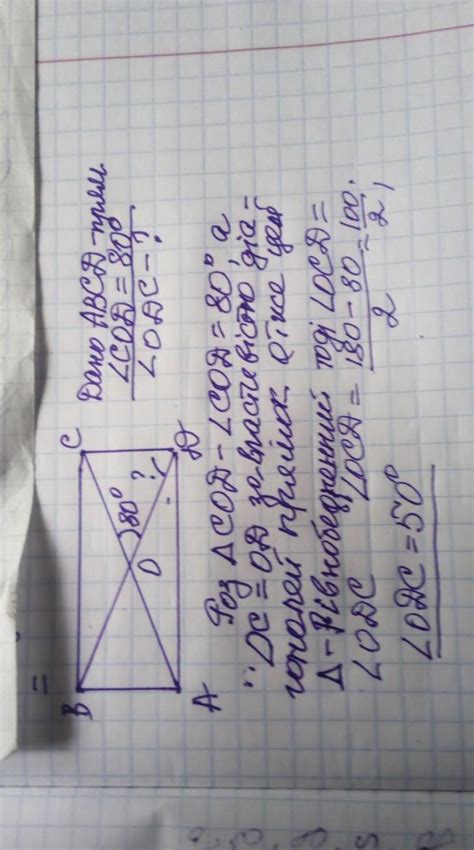 B C
O 80° ?
A D
Дано ABCD-прям
∠COD = 80°
∠ODC - ?
Роз ΔCOD - ∠COD = 80°, а
DC = OD за властивістю діа-
гоналей прямок отже цей
Δ - рівнобедренний тоді ∠OCD =
∠ODC ∠OCD = 180 - 80 / 2 = 100 / 2,
∠ODC = 50°